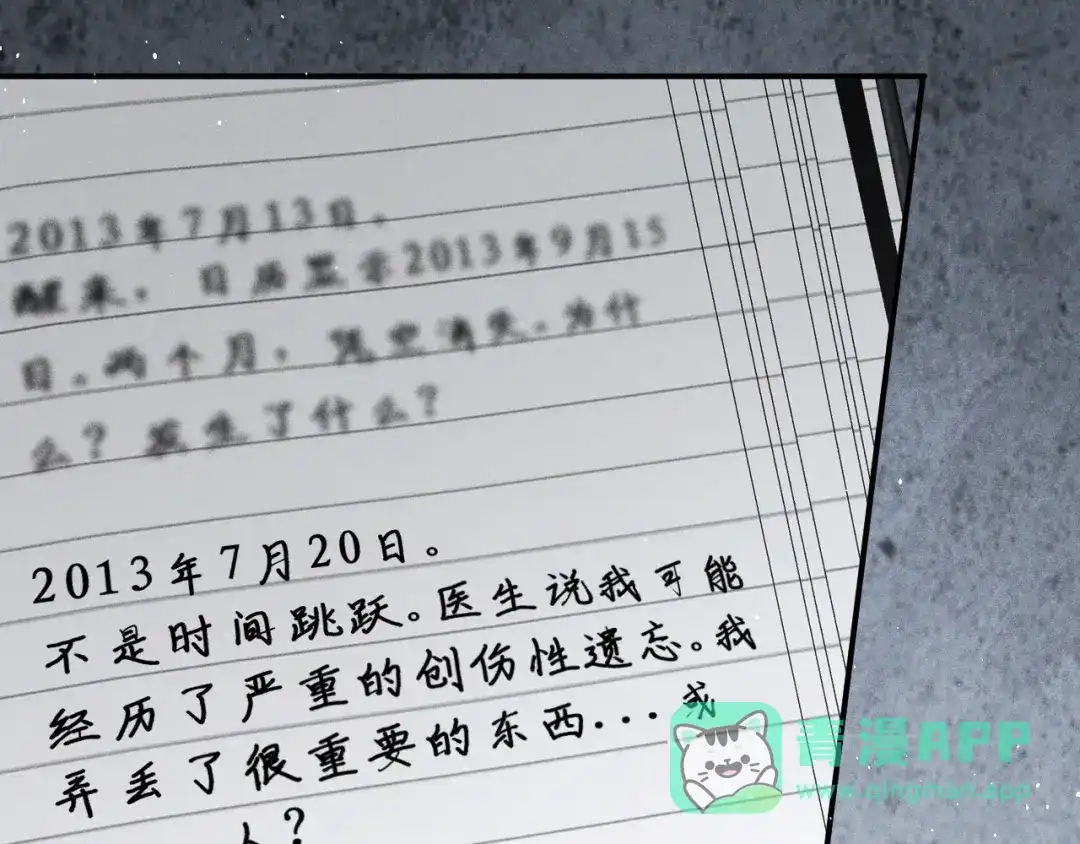 2013年7月13日。
醒来，日历显示2013年9月15
日。两个月，凭空消失。为什
么？发生了什么？
2013年7月20日。
不是时间跳跃。医生说我可能
经历了严重的创伤性遗忘。我
弄丢了很重要的东西...或
人？
青漫APP
www.qingman.app